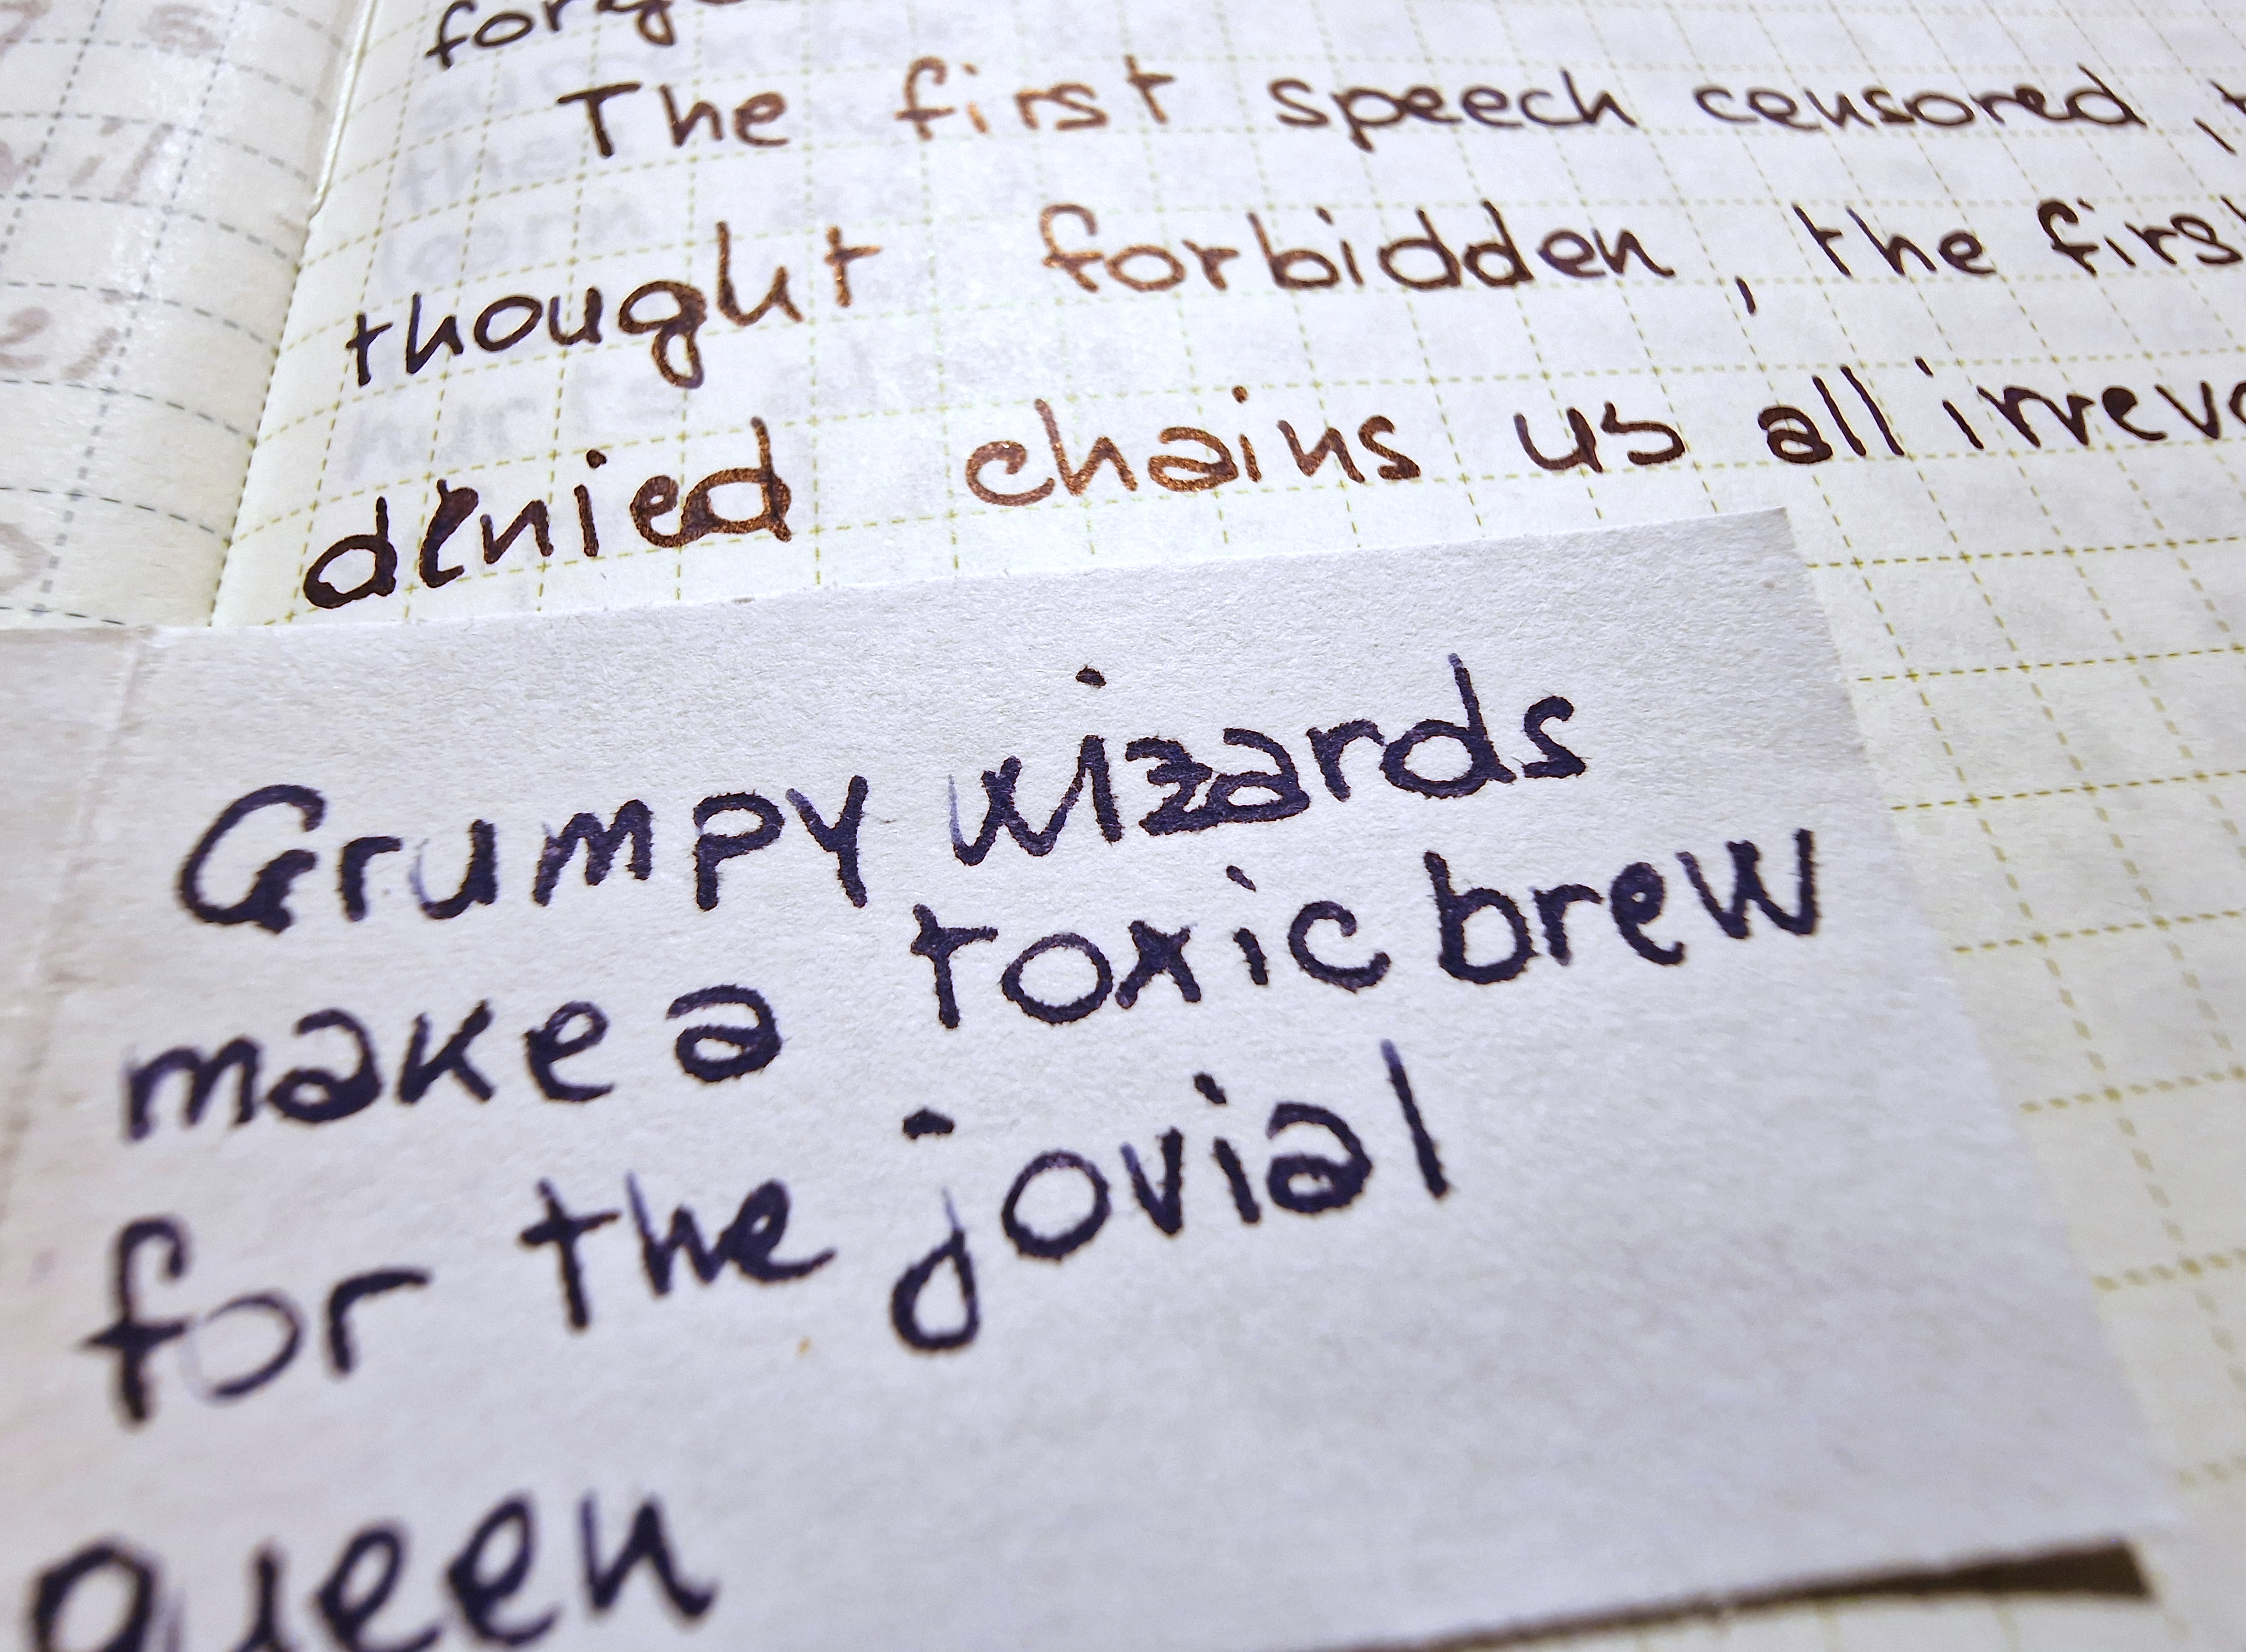 The first speech censored,
thought forbidden, the first
denied chains us all
Grumpy wizards
make a toxic brew
for the jovial
queen